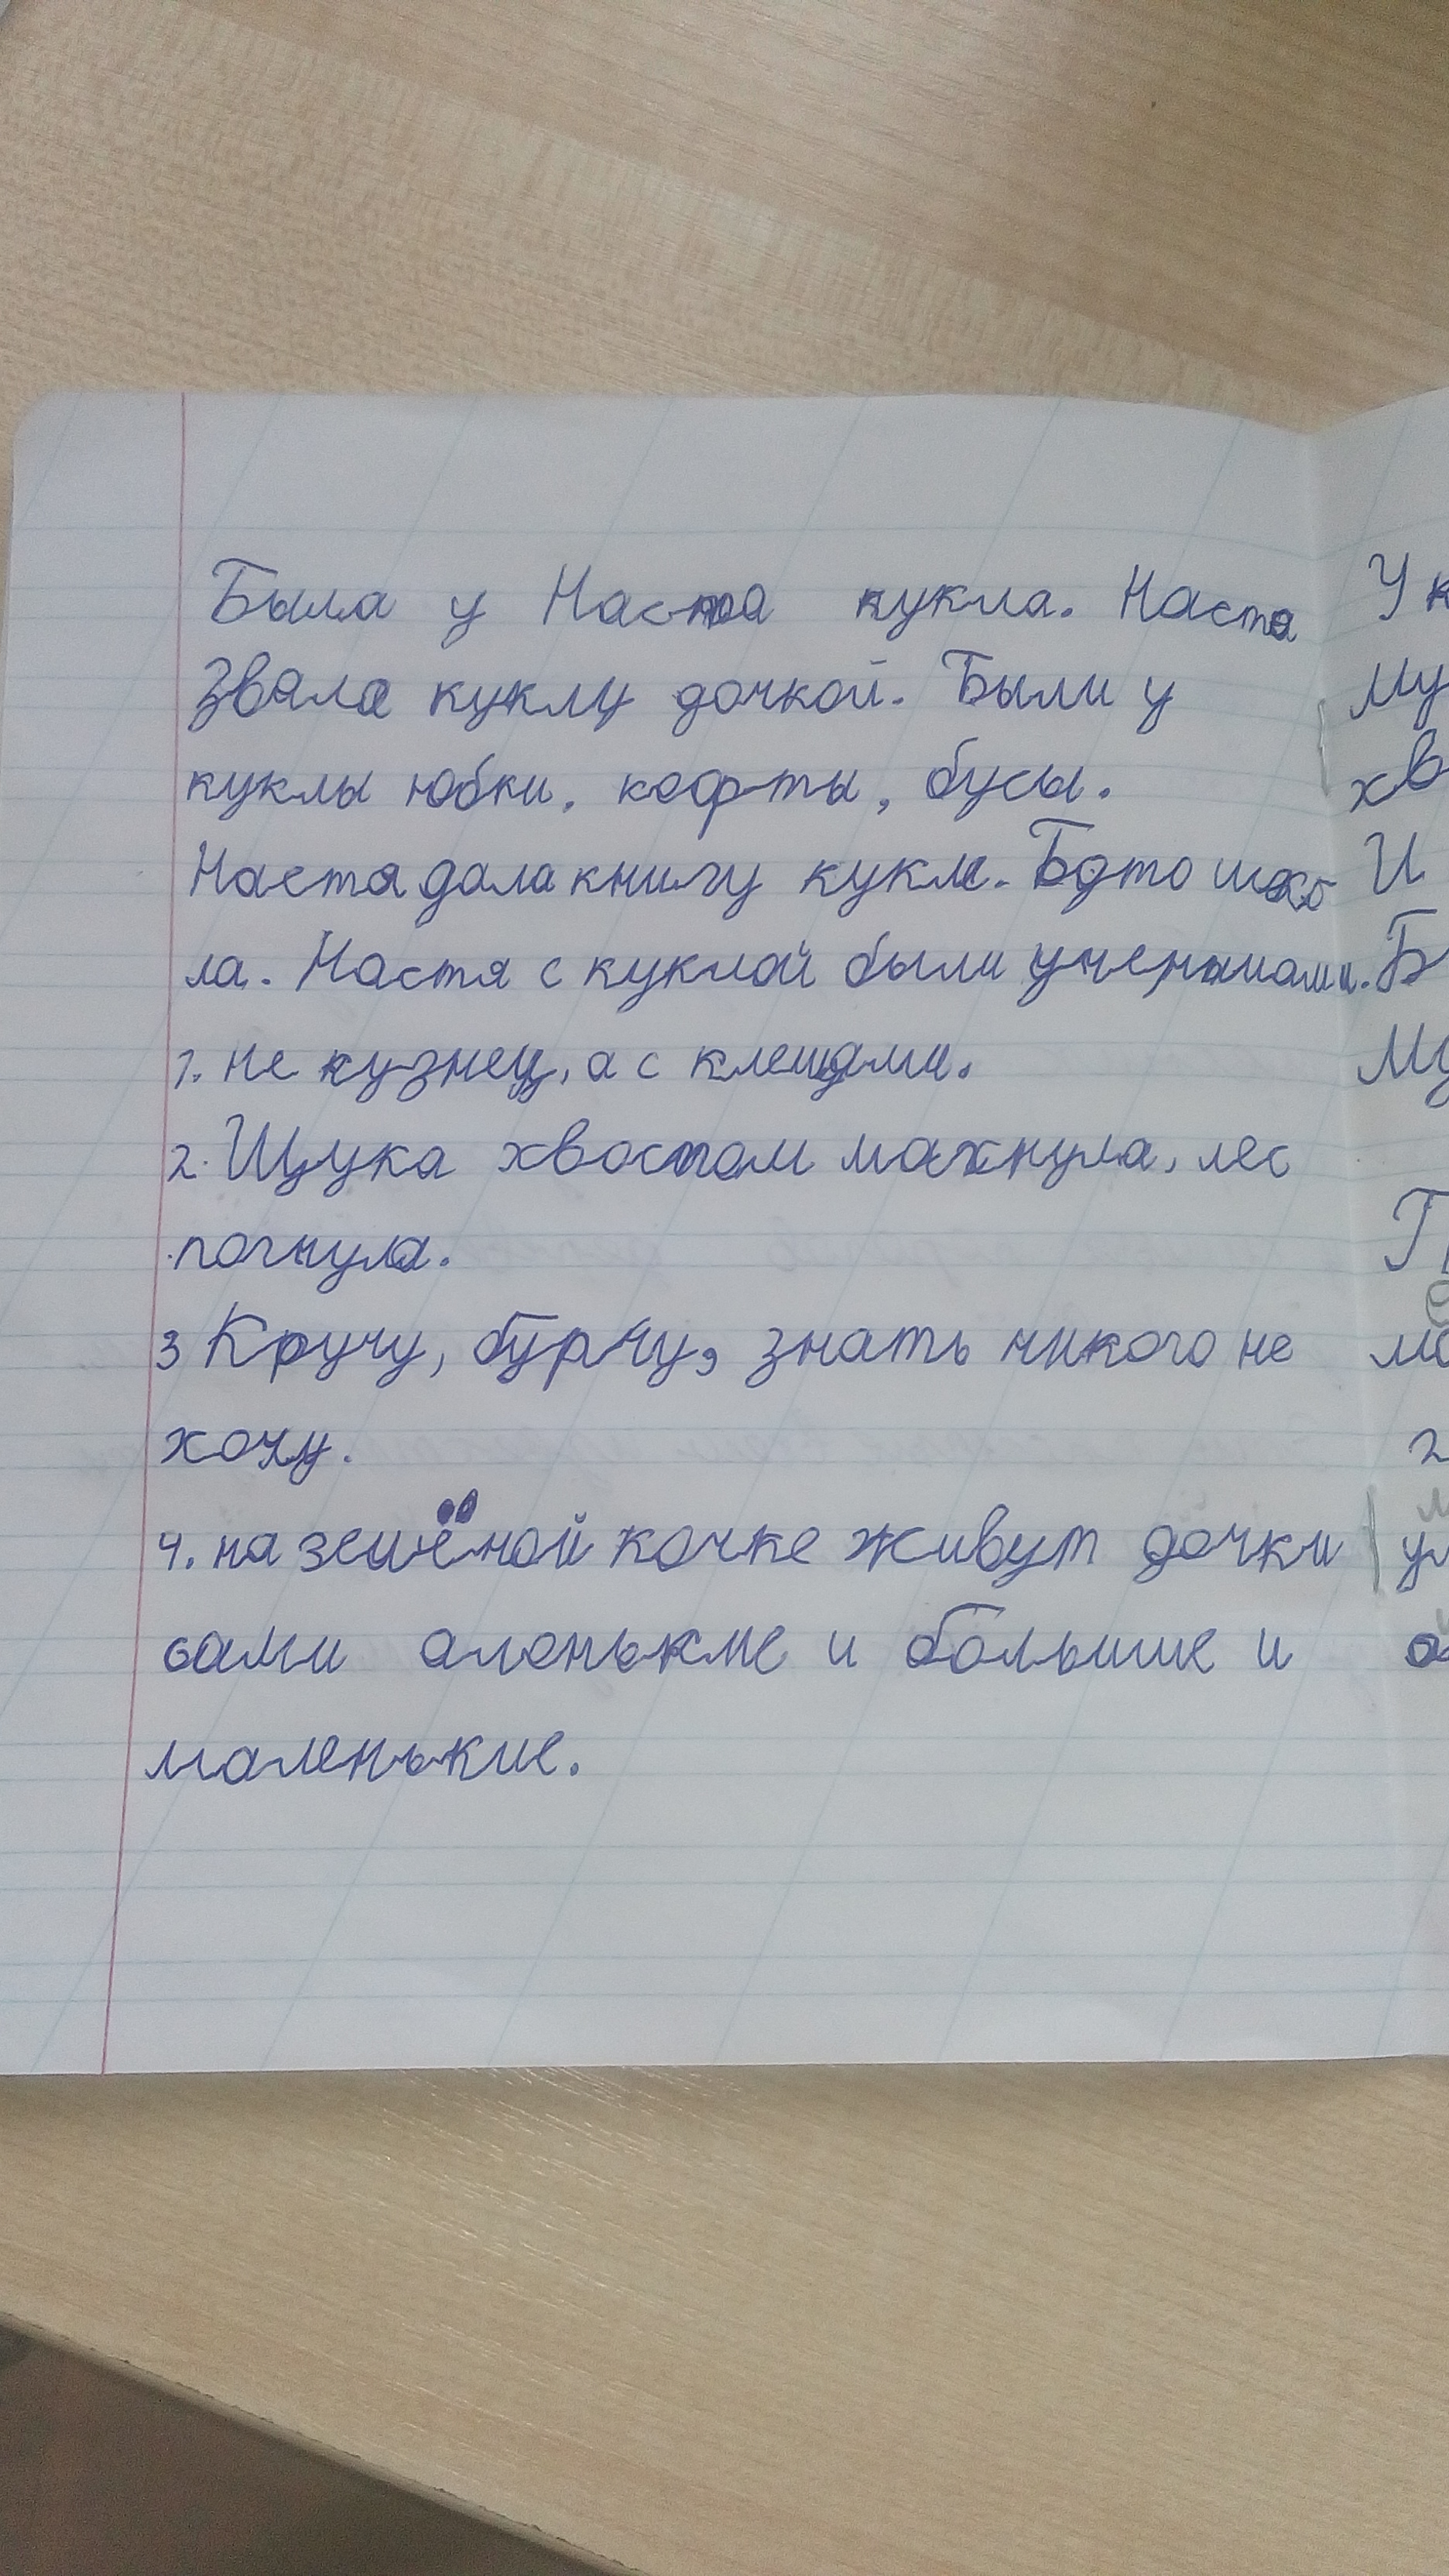 Была у Наста кукла. Настя
Звала куклу дочкой. Были у
куклы юбки, кофты, бусы.
Настя дала книгу кукле. Бдто шко
ла. Настя с куклой были
1. не кузнец, а с клещами.
2. Щука хвостом махнула, лес
погнула.
3 Кручу, бурчу, знать никого не
хочу.
4. на зелёной кочке живут дочки
сами аленькие и большие и
маленькие.